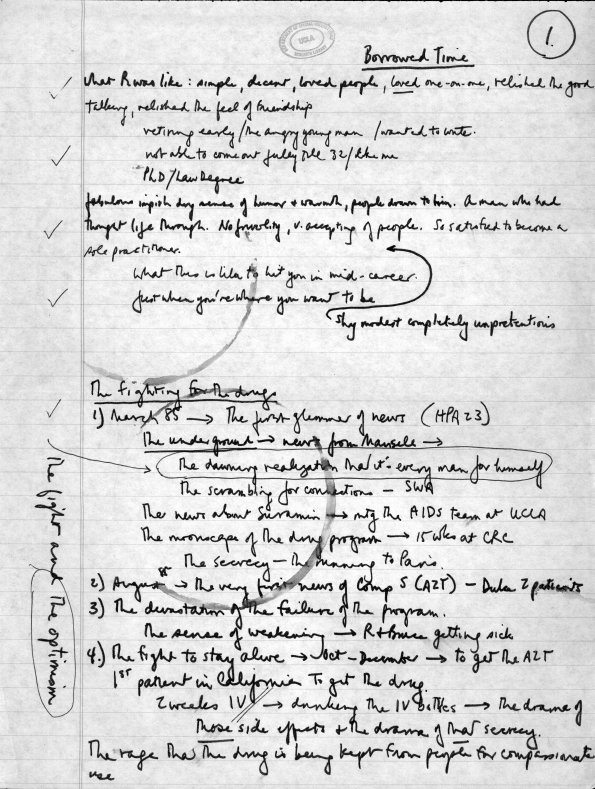 1.
UCLA
Borrowed Time
What R was like: simple, decent, loved people, loved one-on-one, relished the good
talking, relished the feel of friendship
retiring early / the angry young man / wanted to write.
not able to come out fully till 32 / like me
PhD / Law Degree
fabulous impish dry sense of humor + warmth, people drawn to him. A man who had
thought life through. No frivolity, v. accepting of people. So satisfied to become a
sole practitioner.
What this is like to hit you in mid-career.
Just when you're where you want to be
shy modest completely unpretentious
The fighting for the drug
1) March 85 → The first glimmer of news (HPA 23)
The underground → news from →
The dawning realization that it's every man for himself
The scrambling for connections — SWA
The news about Suramin → mtg the AIDs team at UCLA
The moonscape of the drug program → 15 wks at CRC
The secrecy — the running to Paris.
2) August 85 → the very first news of Comp S (AZT) — Duke 2 patients
3) The devastation of the failure of the program.
The sense of weakening → R + Bruce getting sick
4.) The fight to stay alive → Oct–December → to get the AZT
1st patient in California to get the drug.
2 weeks IV → drinking the IV bottles → the drama of
those side effects + the drama of that secrecy.
The rage that the drug is being kept from people for compassionate
use
The fight and the optimism